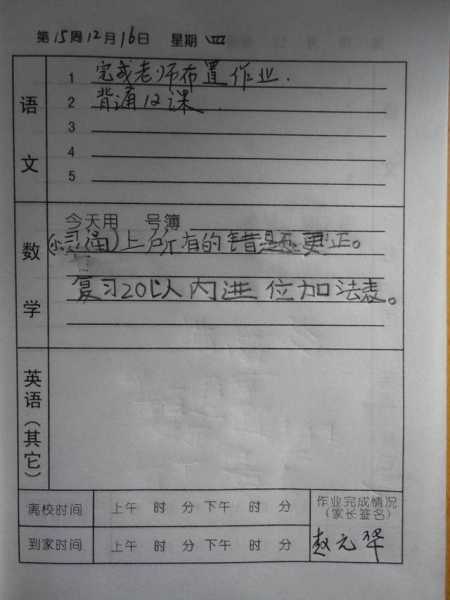 第15周12月16日 星期四
语文
1 完成老师布置作业.
2 背诵12课.
3
4
5
数学
今天用 号簿
(小灵通)上所有的错题更正。
复习20以内进位加法表。
英语(其它)
离校时间 上午 时 分 下午 时 分
到家时间 上午 时 分 下午 时 分
作业完成情况
(家长签名)
赵元华